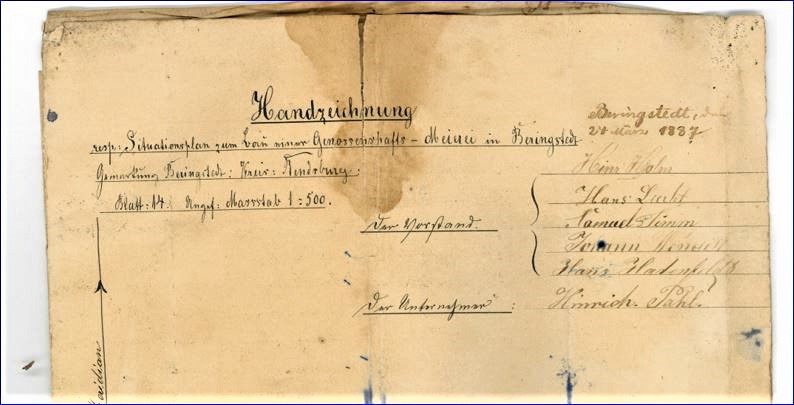 Handzeichnung
resp: Situationsplan zum Bau einer Genossenschafts-Meierei in Beringstedt
Gemarkung Beringstedt: Kreis: Rendsburg.
Blatt: 14. Ungef: Massstab 1=500.
Beringstedt, den
20 März 1887
Hinr Holm
Hans
Der Vorstand.
Samuel Timm
Johann
Hans Hadenfeldt
Der Unternehmer:
Hinrich Pahl.
Meridian